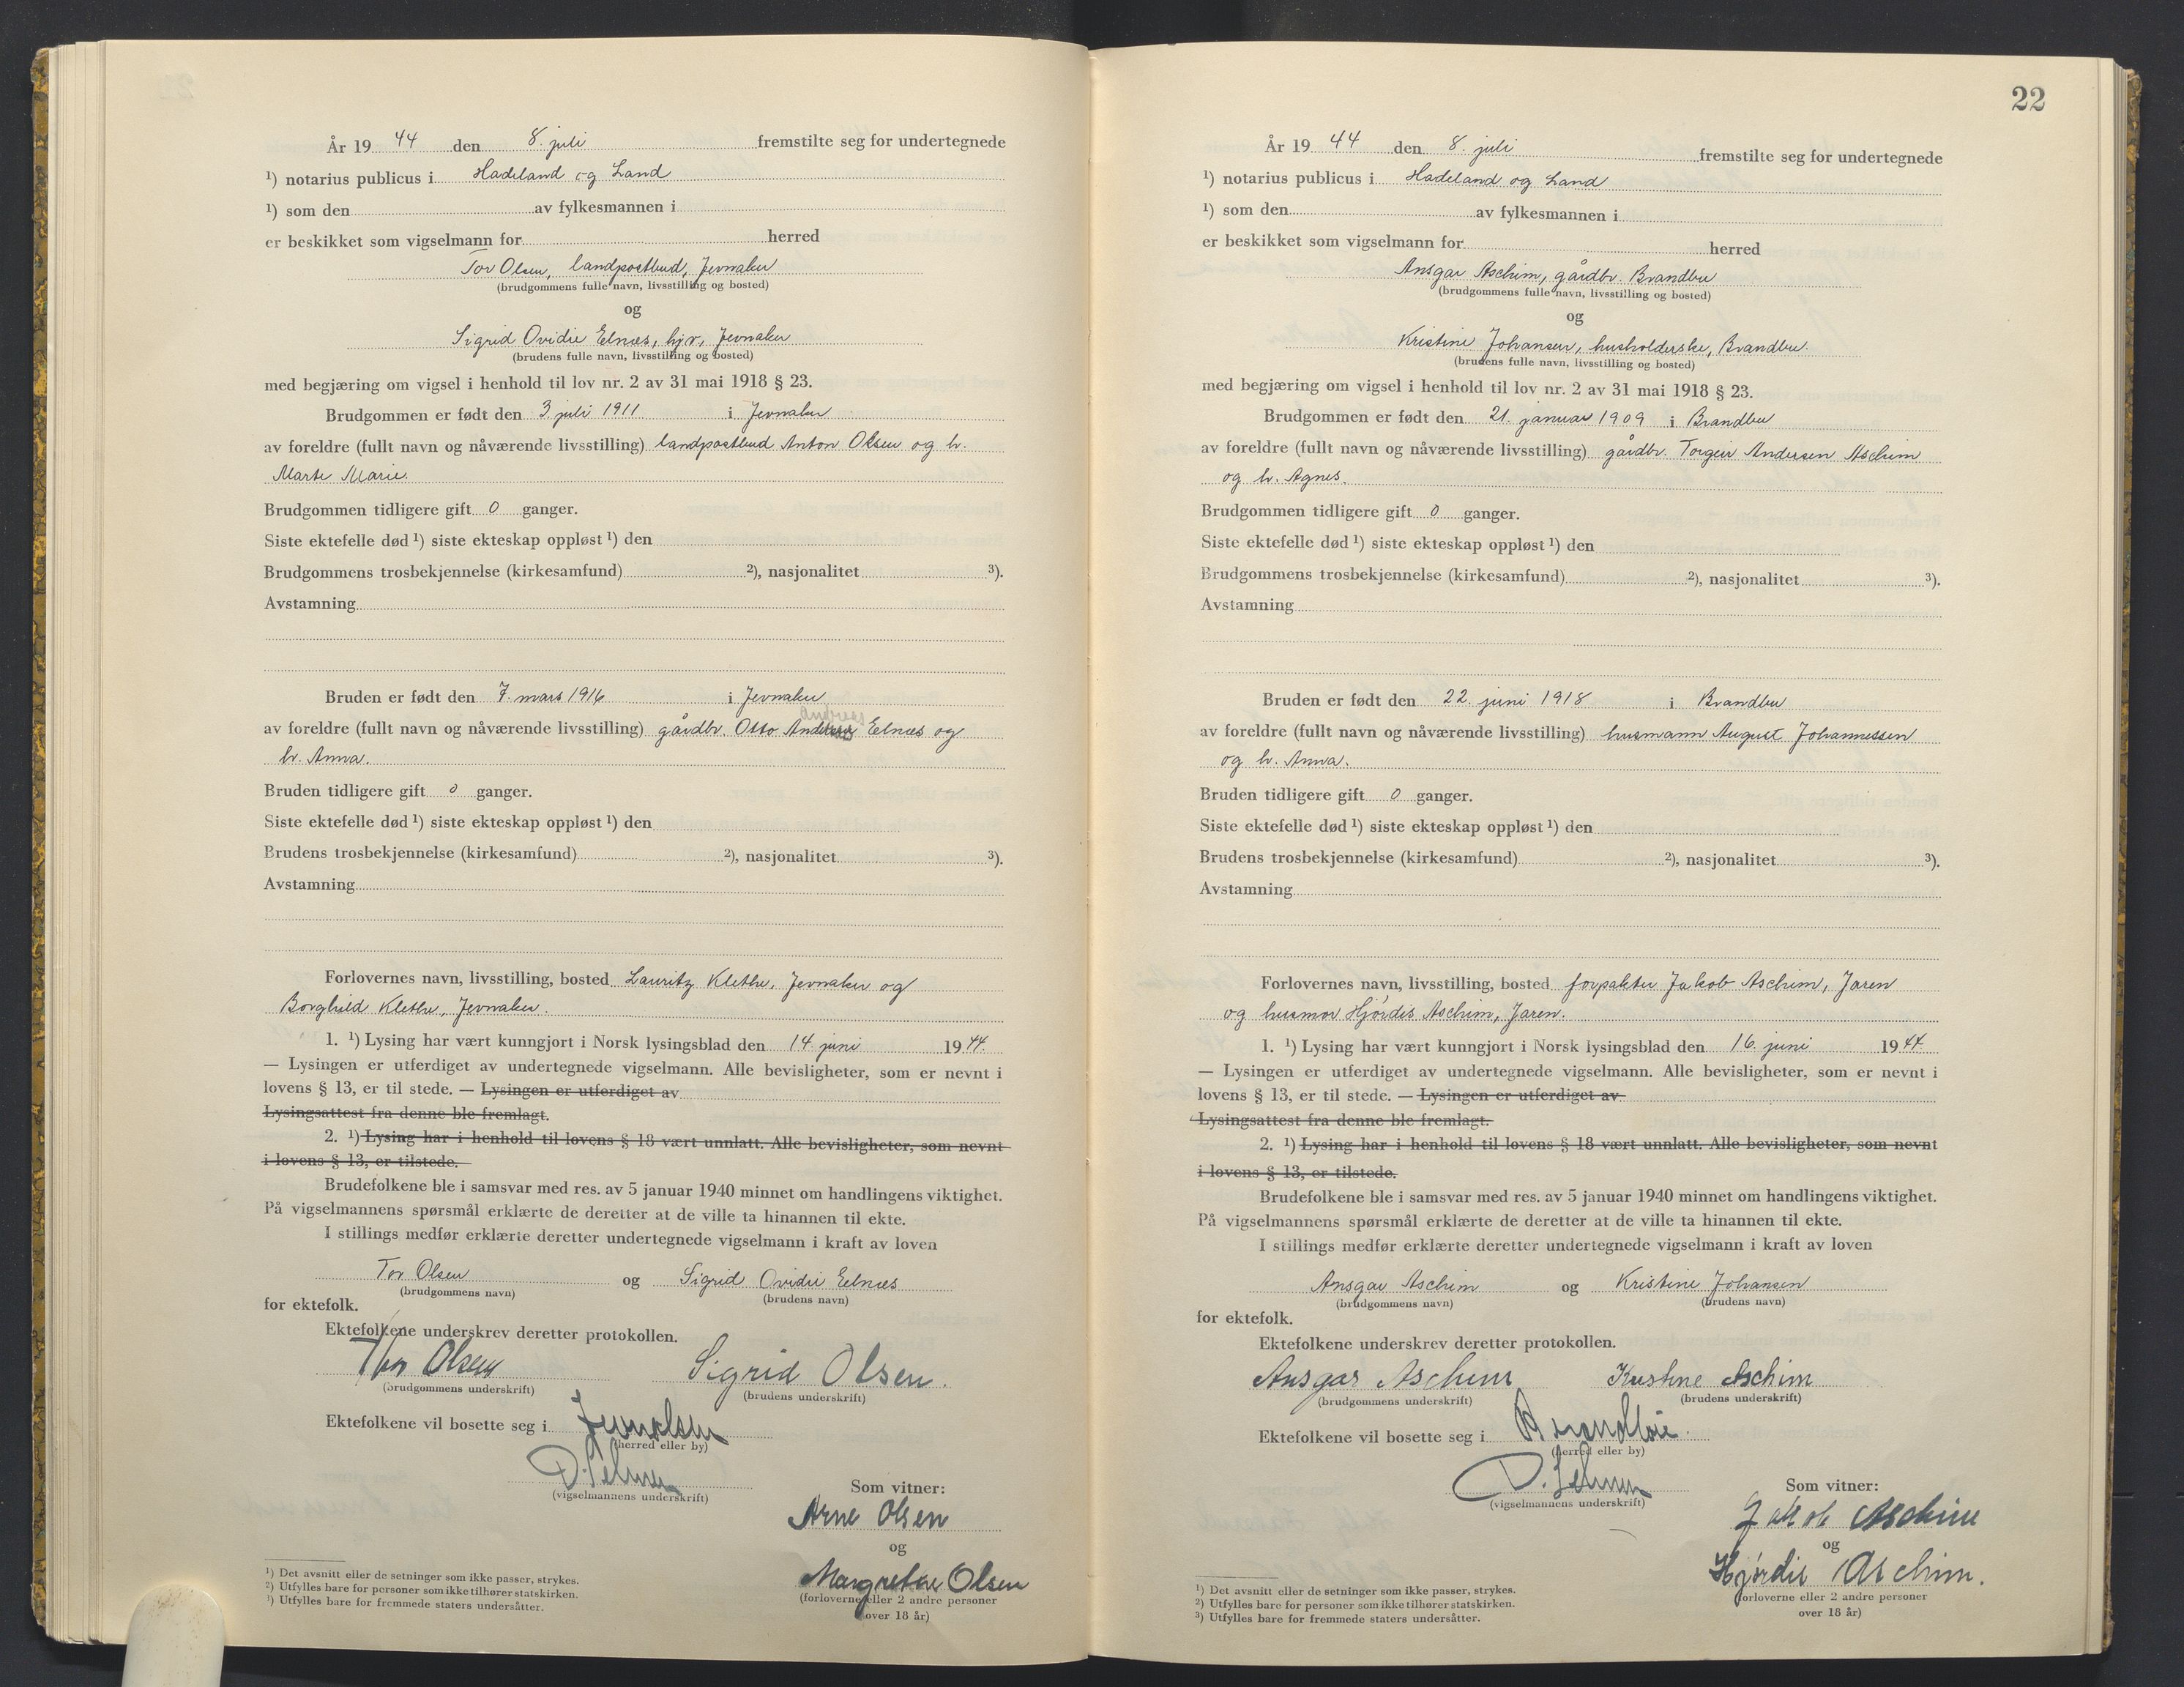 År 19 44 den 8. juli fremstilte seg for undertegnede
¹) notarius publicus i Hadeland og Land
¹) som den av fylkesmannen i
er beskikket som vigselmann for herred
Tor Olsen, landpostbud, Jevnaker
(brudgommens fulle navn, livsstilling og bosted)
og
Sigrid Ovidie Eelnæs, hjv., Jevnaker
(brudens fulle navn, livsstilling og bosted)
med begjæring om vigsel i henhold til lov nr. 2 av 31 mai 1918 § 23.
Brudgommen er født den 3. juli 1911 i Jevnaker
av foreldre (fullt navn og nåværende livsstilling) landpostbud Anton Olsen og h.
Marte Marie.
Brudgommen tidligere gift 0 ganger.
Siste ektefelle død ¹) siste ekteskap oppløst ¹) den
Brudgommens trosbekjennelse (kirkesamfund) ²), nasjonalitet ³).
Avstamning
Bruden er født den 7. mars 1916 i Jevnaker
av foreldre (fullt navn og nåværende livsstilling) gårdbr. Otto Eelnæs og
h. Anna.
Bruden tidligere gift 0 ganger.
Siste ektefelle død ¹) siste ekteskap oppløst ¹) den
Brudens trosbekjennelse (kirkesamfund) ²), nasjonalitet ³).
Avstamning
Forlovernes navn, livsstilling, bosted Lauritz Klethe, Jevnaker og
Borghild Klethe, Jevnaker.
1. ¹) Lysing har vært kunngjort i Norsk lysingsblad den 14. juni 19 44.
— Lysingen er utferdiget av undertegnede vigselmann. Alle bevisligheter, som er nevnt i
lovens § 13, er til stede. — Lysingen er utferdiget av
Lysingsattest fra denne ble fremlagt.
2. ¹) Lysing har i henhold til lovens § 18 vært unnlatt. Alle bevisligheter, som nevnt
i lovens § 13, er tilstede.
Brudefolkene ble i samsvar med res. av 5 januar 1940 minnet om handlingens viktighet.
På vigselmannens spørsmål erklærte de deretter at de ville ta hinannen til ekte.
I stillings medfør erklærte deretter undertegnede vigselmann i kraft av loven
Tor Olsen og Sigrid Ovidie Eelnæs
(brudgommens navn) (brudens navn)
for ektefolk.
Ektefolkene underskrev deretter protokollen.
Thor Olsen Sigrid Olsen.
(brudgommens underskrift) (brudens underskrift)
Ektefolkene vil bosette seg i Jevnaker
(herred eller by)
(vigselmannens underskrift)
Som vitner:
Arne Olsen
og
Margrethe Olsen
(forloverne eller 2 andre personer
over 18 år)
¹) Det avsnitt eller de setninger som ikke passer, strykes.
²) Utfylles bare for personer som ikke tilhører statskirken.
³) Utfylles bare for fremmede staters undersåtter.
22
År 19 44 den 8. juli fremstilte seg for undertegnede
¹) notarius publicus i Hadeland og Land
¹) som den av fylkesmannen i
er beskikket som vigselmann for herred
Ansgar Aschim, gårdbr. Brandbu
(brudgommens fulle navn, livsstilling og bosted)
og
Kristine Johansen, husholderske, Brandbu.
(brudens fulle navn, livsstilling og bosted)
med begjæring om vigsel i henhold til lov nr. 2 av 31 mai 1918 § 23.
Brudgommen er født den 21. januar 1909 i Brandbu
av foreldre (fullt navn og nåværende livsstilling) gårdbr. Torgeir Andersen Aschim
og h. Agnes.
Brudgommen tidligere gift 0 ganger.
Siste ektefelle død ¹) siste ekteskap oppløst ¹) den
Brudgommens trosbekjennelse (kirkesamfund) ²), nasjonalitet ³).
Avstamning
Bruden er født den 22. juni 1918 i Brandbu
av foreldre (fullt navn og nåværende livsstilling) husmann August Johannessen
og h. Anna.
Bruden tidligere gift 0 ganger.
Siste ektefelle død ¹) siste ekteskap oppløst ¹) den
Brudens trosbekjennelse (kirkesamfund) ²), nasjonalitet ³).
Avstamning
Forlovernes navn, livsstilling, bosted forpakter Jakob Aschim, Jaren
og husmor Hjørdis Aschim, Jaren.
1. ¹) Lysing har vært kunngjort i Norsk lysingsblad den 16. juni 19 44.
— Lysingen er utferdiget av undertegnede vigselmann. Alle bevisligheter, som er nevnt i
lovens § 13, er til stede. — Lysingen er utferdiget av
Lysingsattest fra denne ble fremlagt.
2. ¹) Lysing har i henhold til lovens § 18 vært unnlatt. Alle bevisligheter, som nevnt
i lovens § 13, er tilstede.
Brudefolkene ble i samsvar med res. av 5 januar 1940 minnet om handlingens viktighet.
På vigselmannens spørsmål erklærte de deretter at de ville ta hinannen til ekte.
I stillings medfør erklærte deretter undertegnede vigselmann i kraft av loven
Ansgar Aschim og Kristine Johansen
(brudgommens navn) (brudens navn)
for ektefolk.
Ektefolkene underskrev deretter protokollen.
Ansgar Aschim Kristine Aschim
(brudgommens underskrift) (brudens underskrift)
Ektefolkene vil bosette seg i Brandbu.
(herred eller by)
(vigselmannens underskrift)
Som vitner:
Jakob Aschim
og
Hjørdis Aschim.
(forloverne eller 2 andre personer
over 18 år)
¹) Det avsnitt eller de setninger som ikke passer, strykes.
²) Utfylles bare for personer som ikke tilhører statskirken.
³) Utfylles bare for fremmede staters undersåtter.